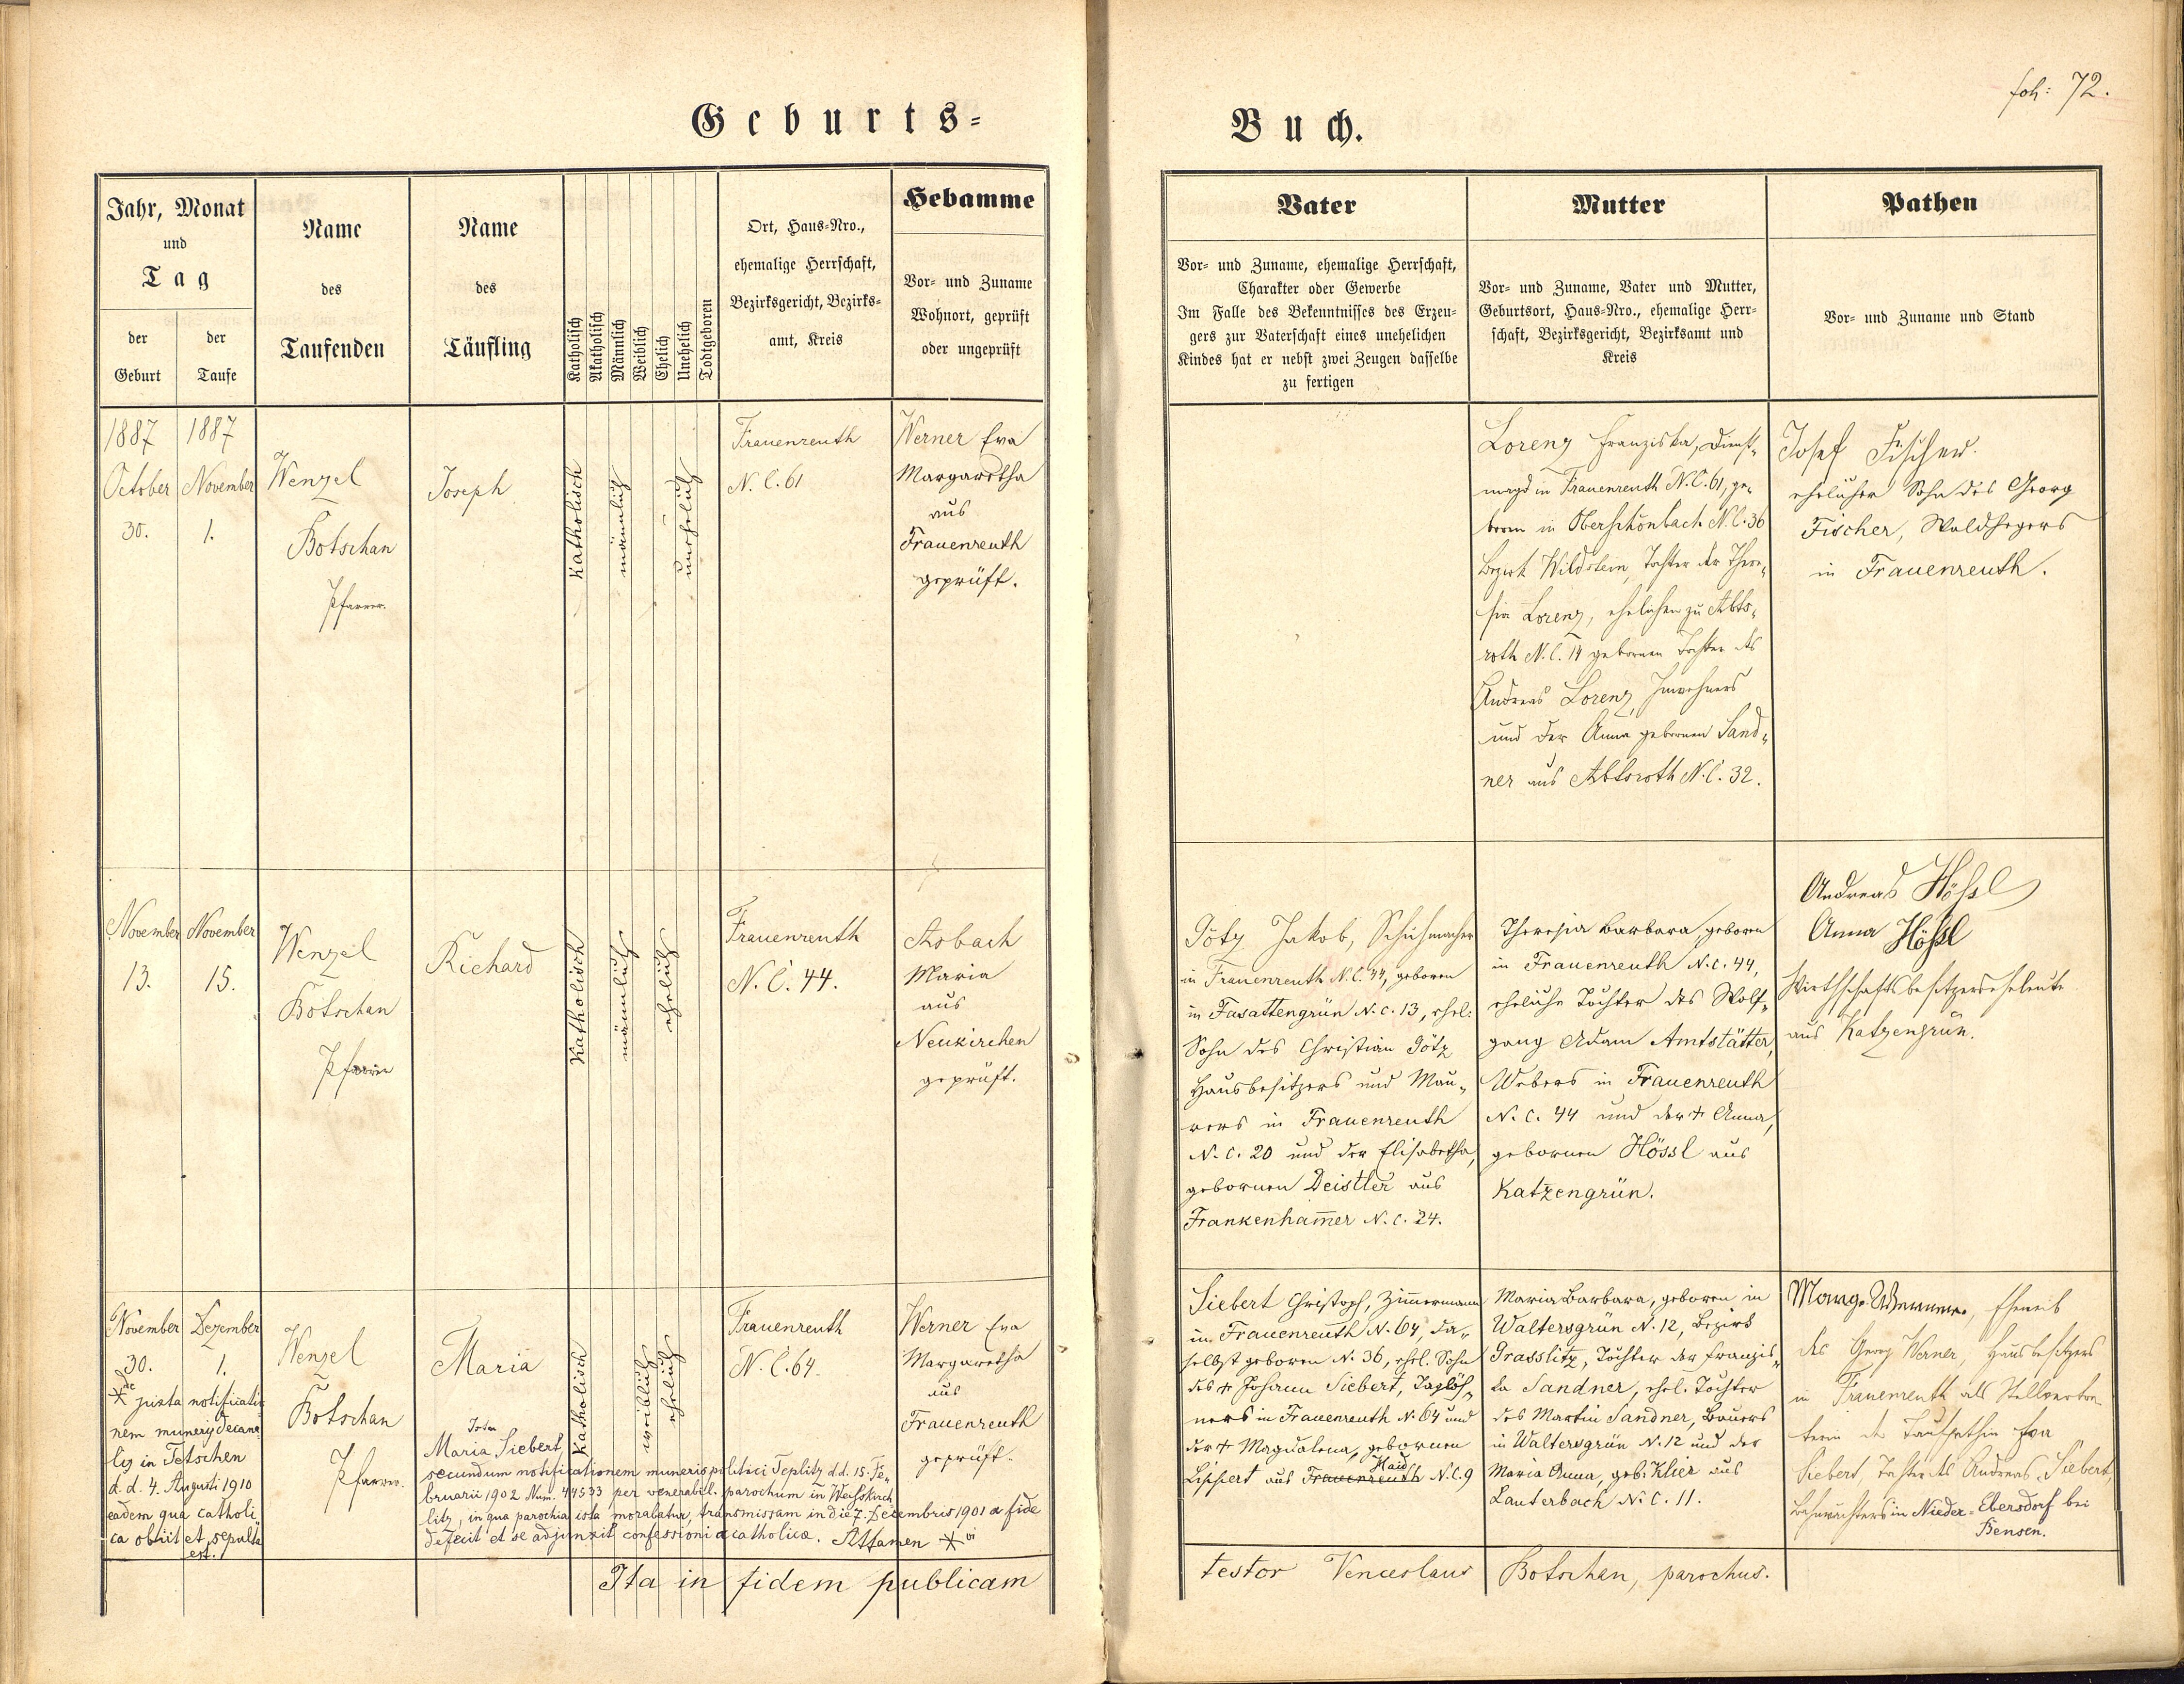 foh: 72.
Geburts=
Buch.
Jahr, Monat
und
Tag
der
Geburt
der
Taufe
Name
des
Taufenden
Name
des
Täufling
Katholisch
Akatholisch
Männlich
Weiblich
Ehelich
Unehelich
Todtgeboren
Ort, Haus=Nro.,
ehemalige Herrschaft,
Bezirksgericht, Bezirks=
amt, Kreis
Hebamme
Vor= und Zuname
Wohnort, geprüft
oder ungeprüft
Vater
Vor= und Zuname, ehemalige Herrschaft,
Charakter oder Gewerbe
Im Falle des Bekenntnisses des Erzeu=
gers zur Vaterschaft eines unehelichen
Kindes hat er nebst zwei Zeugen dasselbe
zu fertigen
Mutter
Vor= und Zuname, Vater und Mutter,
Geburtsort, Haus=Nro., ehemalige Herr=
schaft, Bezirksgericht, Bezirksamt und
Kreis
Pathen
Vor= und Zuname und Stand
1887
October
30.
1887
November
1.
Wenzel
Botschan
Pfarrer.
Joseph
Katholisch
männlich
unehelich
Frauenreuth
N. C. 61
Werner Eva
Margaretha
aus
Frauenreuth
geprüft.
Lorenz Franziska, Dienst=
magd in Frauenreuth N. C. 61, ge=
boren in Oberschönbach N. C. 36
Bezirk Wildstein, Tochter der There=
sia Lorenz, ehelichen zu Abts=
roth N. C. 14 gebornen Tochter des
Andreas Lorenz, Inwohners
und der Anna gebornen Sand=
ner aus Abtsroth N. C. 32.
Josef Fischer.
ehelicher Sohn des Georg
Fischer, Waldhegers
in Frauenreuth.
November
13.
November
15.
Wenzel
Botschan
Pfarrer
Richard
Katholisch
männlich
ehelich
Frauenreuth
N. C. 44.
Asbach
Maria
aus
Neukirchen
geprüft.
Götz Jakob, Schuhmacher
in Frauenreuth N. C. 44, geboren
in Fasattengrün N. C. 13, ehel.
Sohn des Christian Götz
Hausbesitzers und Mau=
rers in Frauenreuth
N. C. 20 und der Elisabetha,
gebornen Deistler aus
Frankenham̄er N. C. 24.
Theresia Barbara, geboren
in Frauenreuth N. C. 44,
eheliche Tochter des Wolf=
gang Adam Amtstätter,
Webers in Frauenreuth
N. C. 44 und der + Anna,
gebornen Hössl aus
Katzengrün.
Andreas Hößl
Anna Hößl
Wirthschaftsbesitzerseheleute
aus Katzengrün.
November
30.
Dezember
1.
* juxta notificatio
nem muneris decana
lis in Tetschen
d. d. 4. Augusti 1910
eadem qua catholi
ca obiit et sepulta
est.
Wenzel
Botschan
Pfarrer.
Maria
Katholisch
weiblich
ehelich
Frauenreuth
N. C. 64.
Werner Eva
Margaretha
aus
Frauenreuth
geprüft.
Maria Siebert,
secundum notificationem muneris politici Teplitz d. d. 15. Fe=
bruarii 1902 Num. 44533 per venerabil. parochum in Weisskirch
litz, in qua parochia ista morabatur, transmissam in die 7. Decembris 1901 a fide
defecit et se adjunxit confessioni acatholicae. Attamen *
Siebert Christoph, Zimmermann
in Frauenreuth N. 64, da=
selbst geboren N. 36, ehel. Sohn
des + Johann Siebert, Taglöh=
ners in Frauenreuth N. 64 und
der + Magdalena, gebornen
Lippert aus Frauenreuth Haid N. C. 9
Maria Barbara, geboren in
Waltersgrün N. 12, Bezirk
Grasslitz, Tochter der Franzis=
ka Sandner, ehel. Tochter
des Martin Sandner, Bauers
in Waltersgrün N. 12 und der
Maria Anna, geb. Klier aus
Lauterbach N. C. 11.
Marg. Werner, Eheweib
des Georg Werner, Hausbesitzers
in Frauenreuth als Stellvertre
terin der Taufpathin Eva
Siebert, Tochter des Andreas Siebert,
Bahnwächters in Nieder=Ebersdorf bei
Bensen.
Ita in fidem publicam
testor Venceslaus Botschan, parochus.